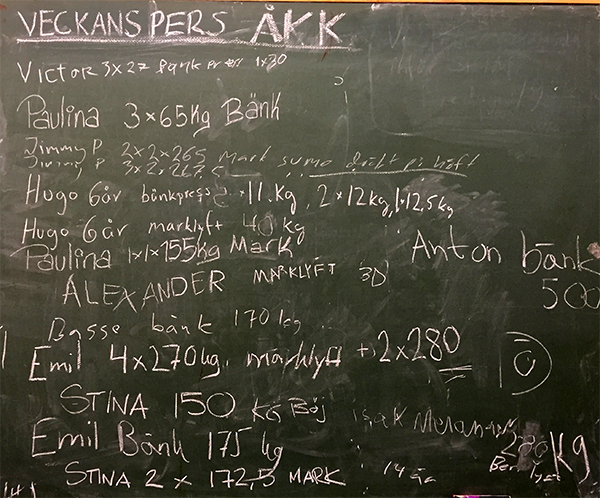 VECKANS PERS ÅKK
Victor 3x27 bänkpress 1x30
Paulina 3x65kg Bänk
Jimmy P 2x2x265 Mark sumo dräkt på höft
Jimmy P 3x2x267,5
Hugo 6år bänkpress 11.kg, 2x12kg, 1x12,5kg
Hugo 6år marklyft 40 kg
Paulina 1x1x155kg Mark
Anton bänk
500
ALEXANDER MARKLYFT 30
Basse bänk 170 kg
Emil 4x270kg. marklyft + 2x280
STINA 150 KG Böj
Isak
Emil Bänk 175 kg
kg
STINA 2 x 172,5 MARK
14 år